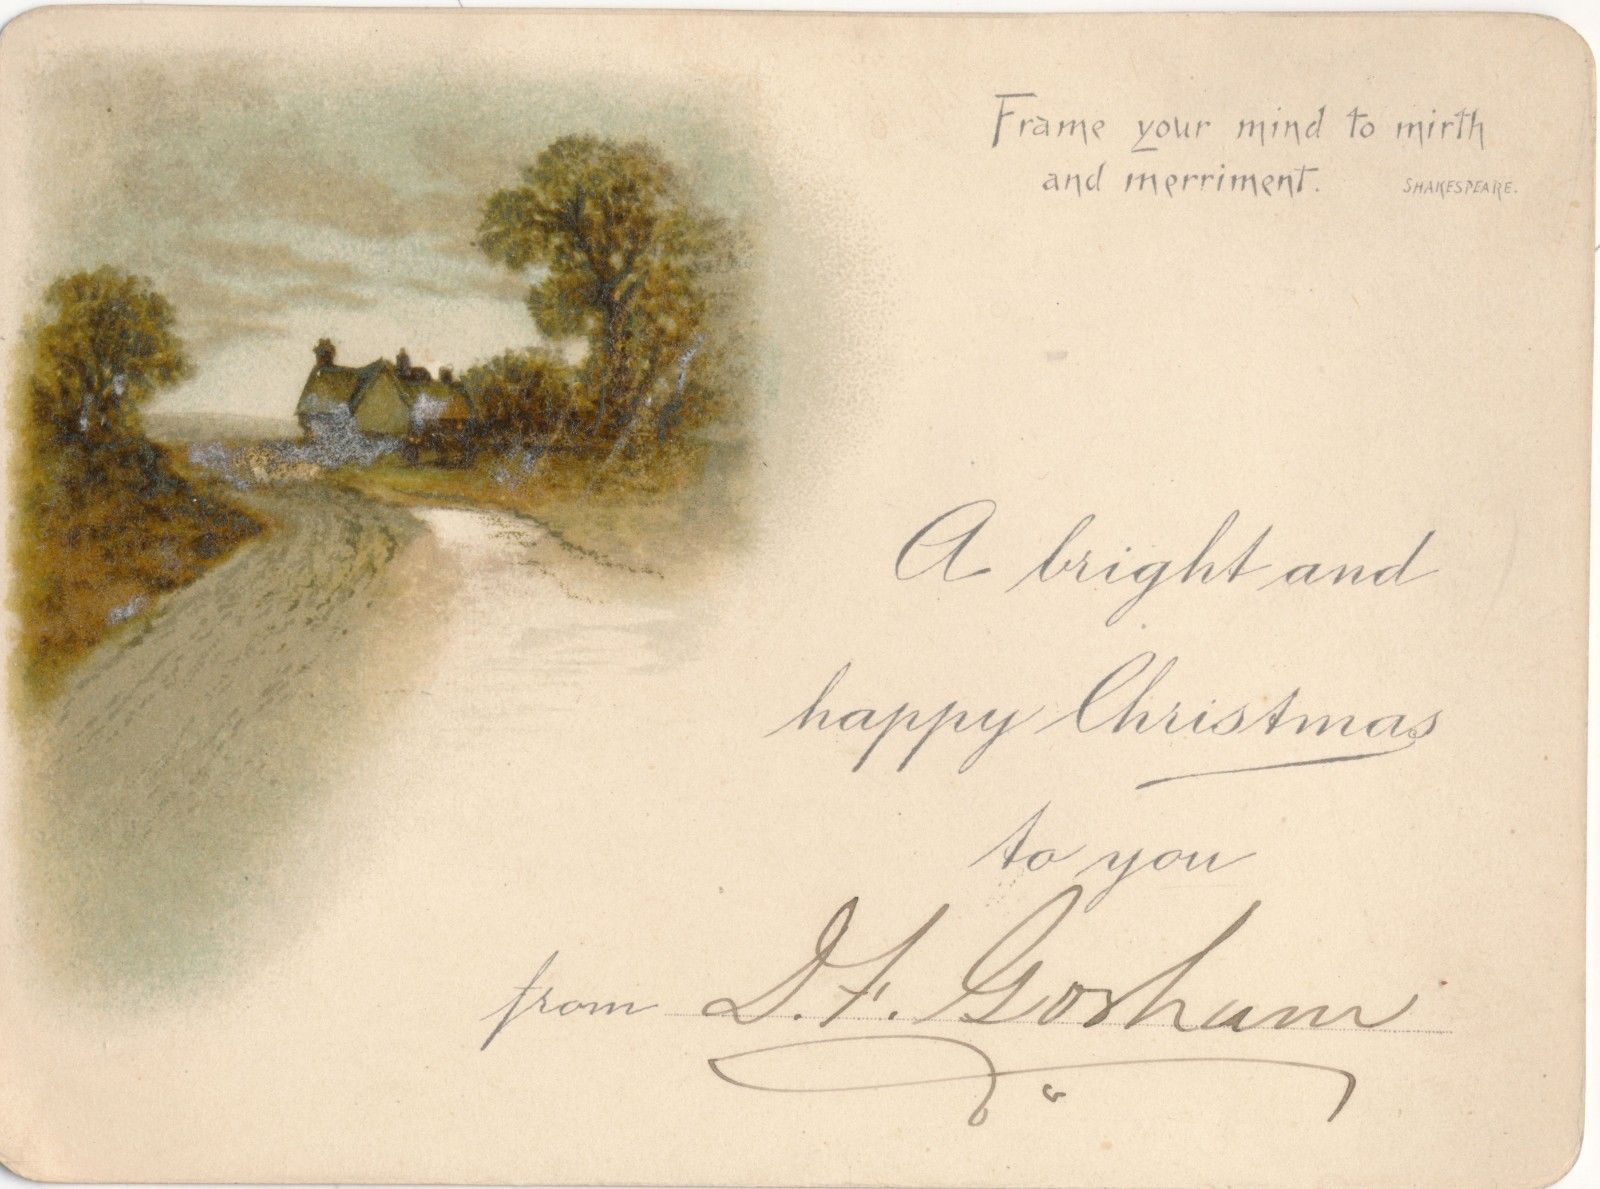 Frame your mind to mirth
and merriment. SHAKESPEARE.
A bright and
happy Christmas
to you
from D. F. Gorham